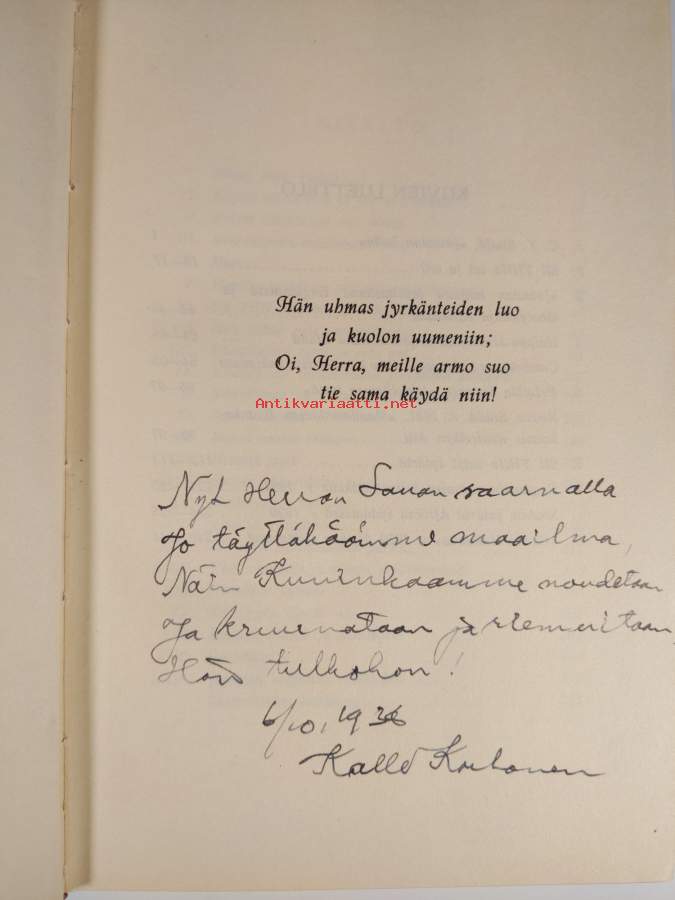 KUVIEN LUETTELO
Hän uhmas jyrkänteiden luo
ja kuolon uumeniin;
Oi, Herra, meille armo suo
tie sama käydä niin!
Antikvariaatti.net
Nyt Herran Sanan saarnalla
Jo täyttäkäämme maailma,
Näin Kuninkaamme noudetaan
Ja kruunataan ja riemuitaan
Hän tulkohon!
6/10, 1936